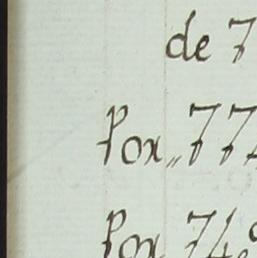 de 7
Por,, 774
Por 74